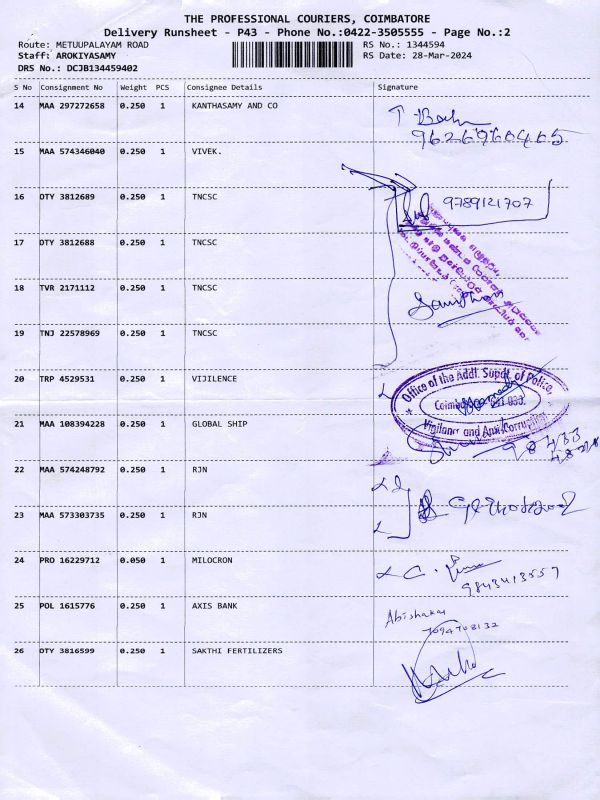 THE PROFESSIONAL COURIERS, COIMBATORE
Delivery Runsheet - P43 - Phone No.:0422-3505555 - Page No.:2
Route: METUUPALAYAM ROAD RS No.: 1344594
Staff: AROKIYASAMY RS Date: 28-Mar-2024
DRS No.: DCJB134459402
S No Consignment No Weight PCS Consignee Details Signature
14 MAA 297272658 0.250 1 KANTHASAMY AND CO
9626960465
15 MAA 574346040 0.250 1 VIVEK.
16 DTY 3812689 0.250 1 TNCSC 9789121707
17 DTY 3812688 0.250 1 TNCSC
18 TVR 2171112 0.250 1 TNCSC
19 TNJ 22578969 0.250 1 TNCSC
20 TRP 4529531 0.250 1 VIJILENCE
Office of the Addl. Supdt. of Police,
Vigilance and Anti-Corruption
21 MAA 108394228 0.250 1 GLOBAL SHIP
22 MAA 574248792 0.250 1 RJN
23 MAA 573303735 0.250 1 RJN
24 PRO 16229712 0.050 1 MILOCRON
9843413557
25 POL 1615776 0.250 1 AXIS BANK
Abishakar
7094708132
26 DTY 3816599 0.250 1 SAKTHI FERTILIZERS